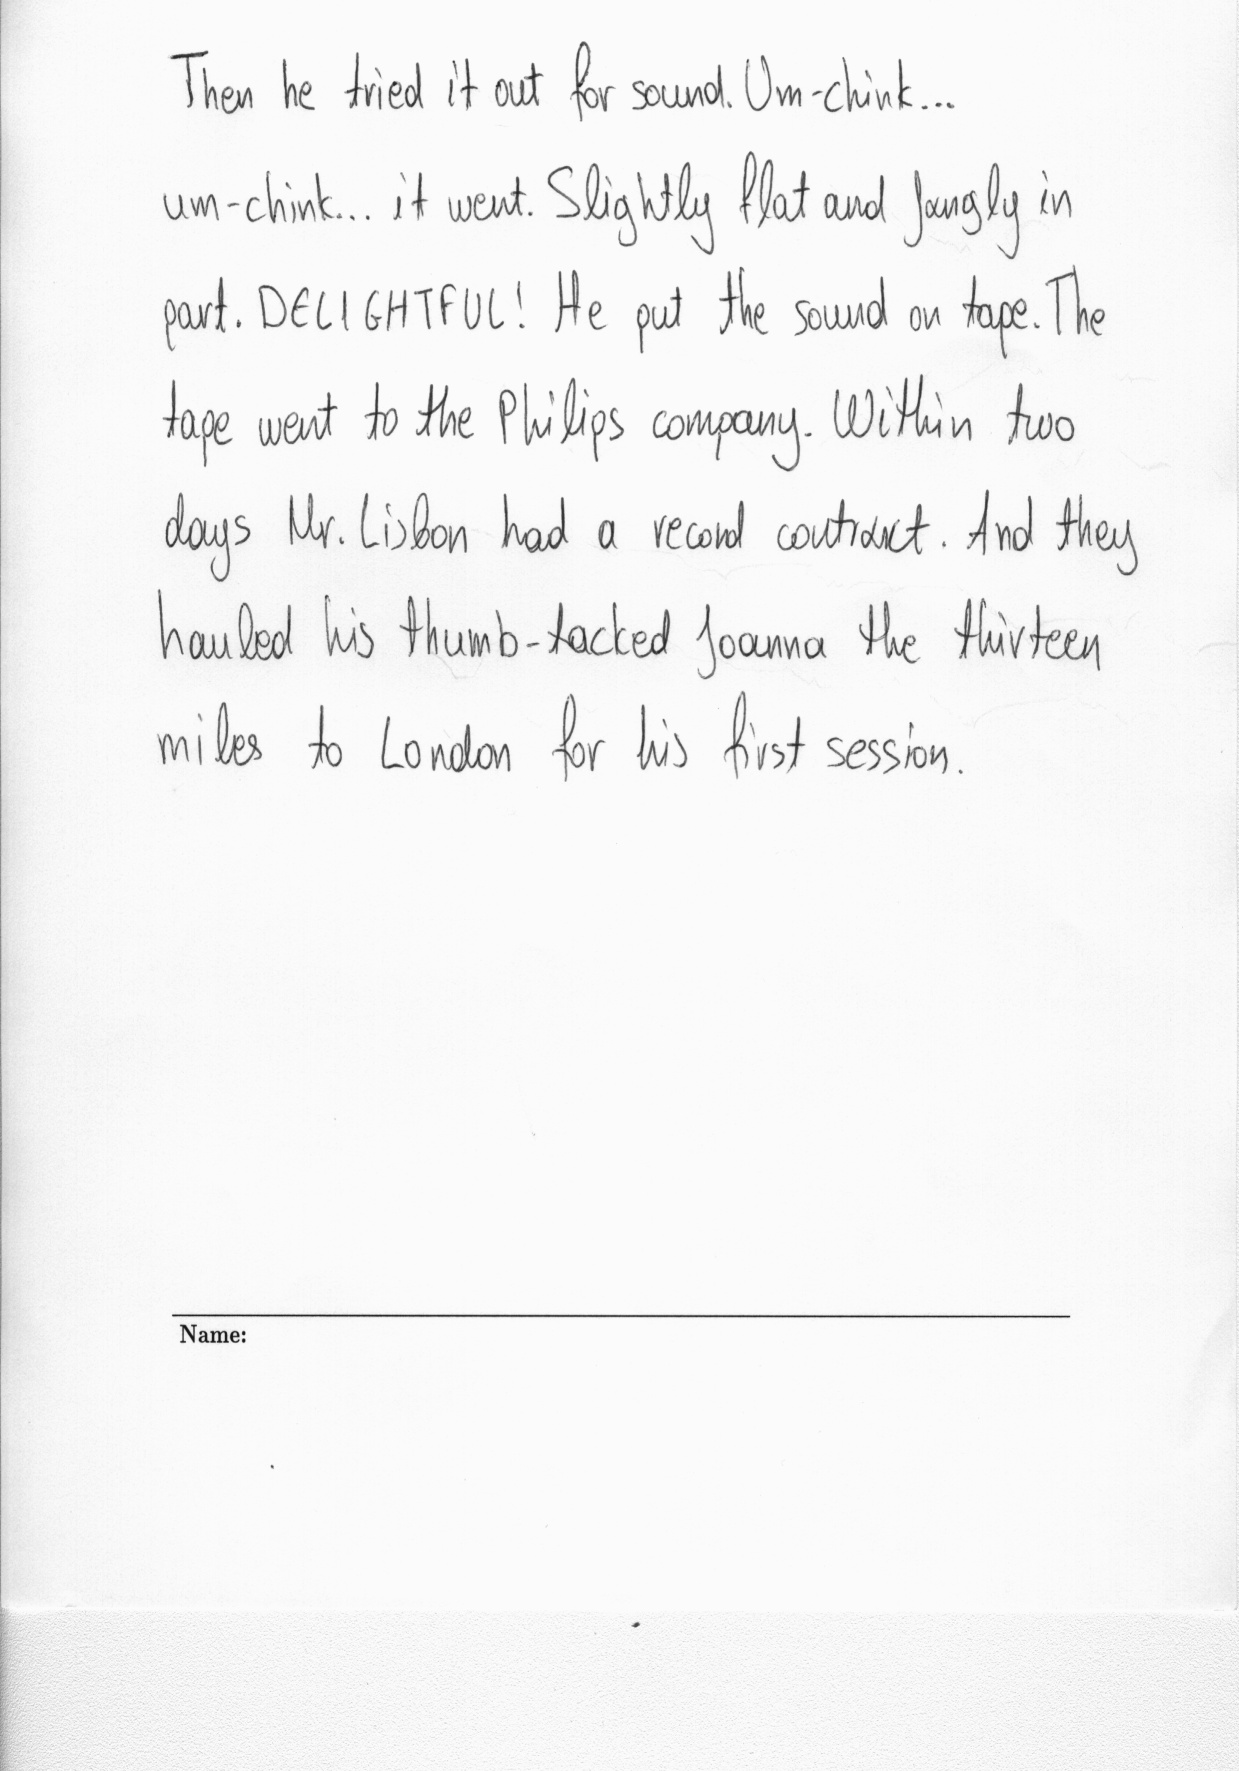 Then he tried it out for sound. Um-chink...
um-chink... it went. Slightly flat and jangly in
part. DELIGHTFUL! He put the sound on tape. The
tape went to the Philips company. Within two
days Mr. Lisbon had a record contract. And they
hauled his thumb-tacked Joanna the thirteen
miles to London for his first session.
Name: